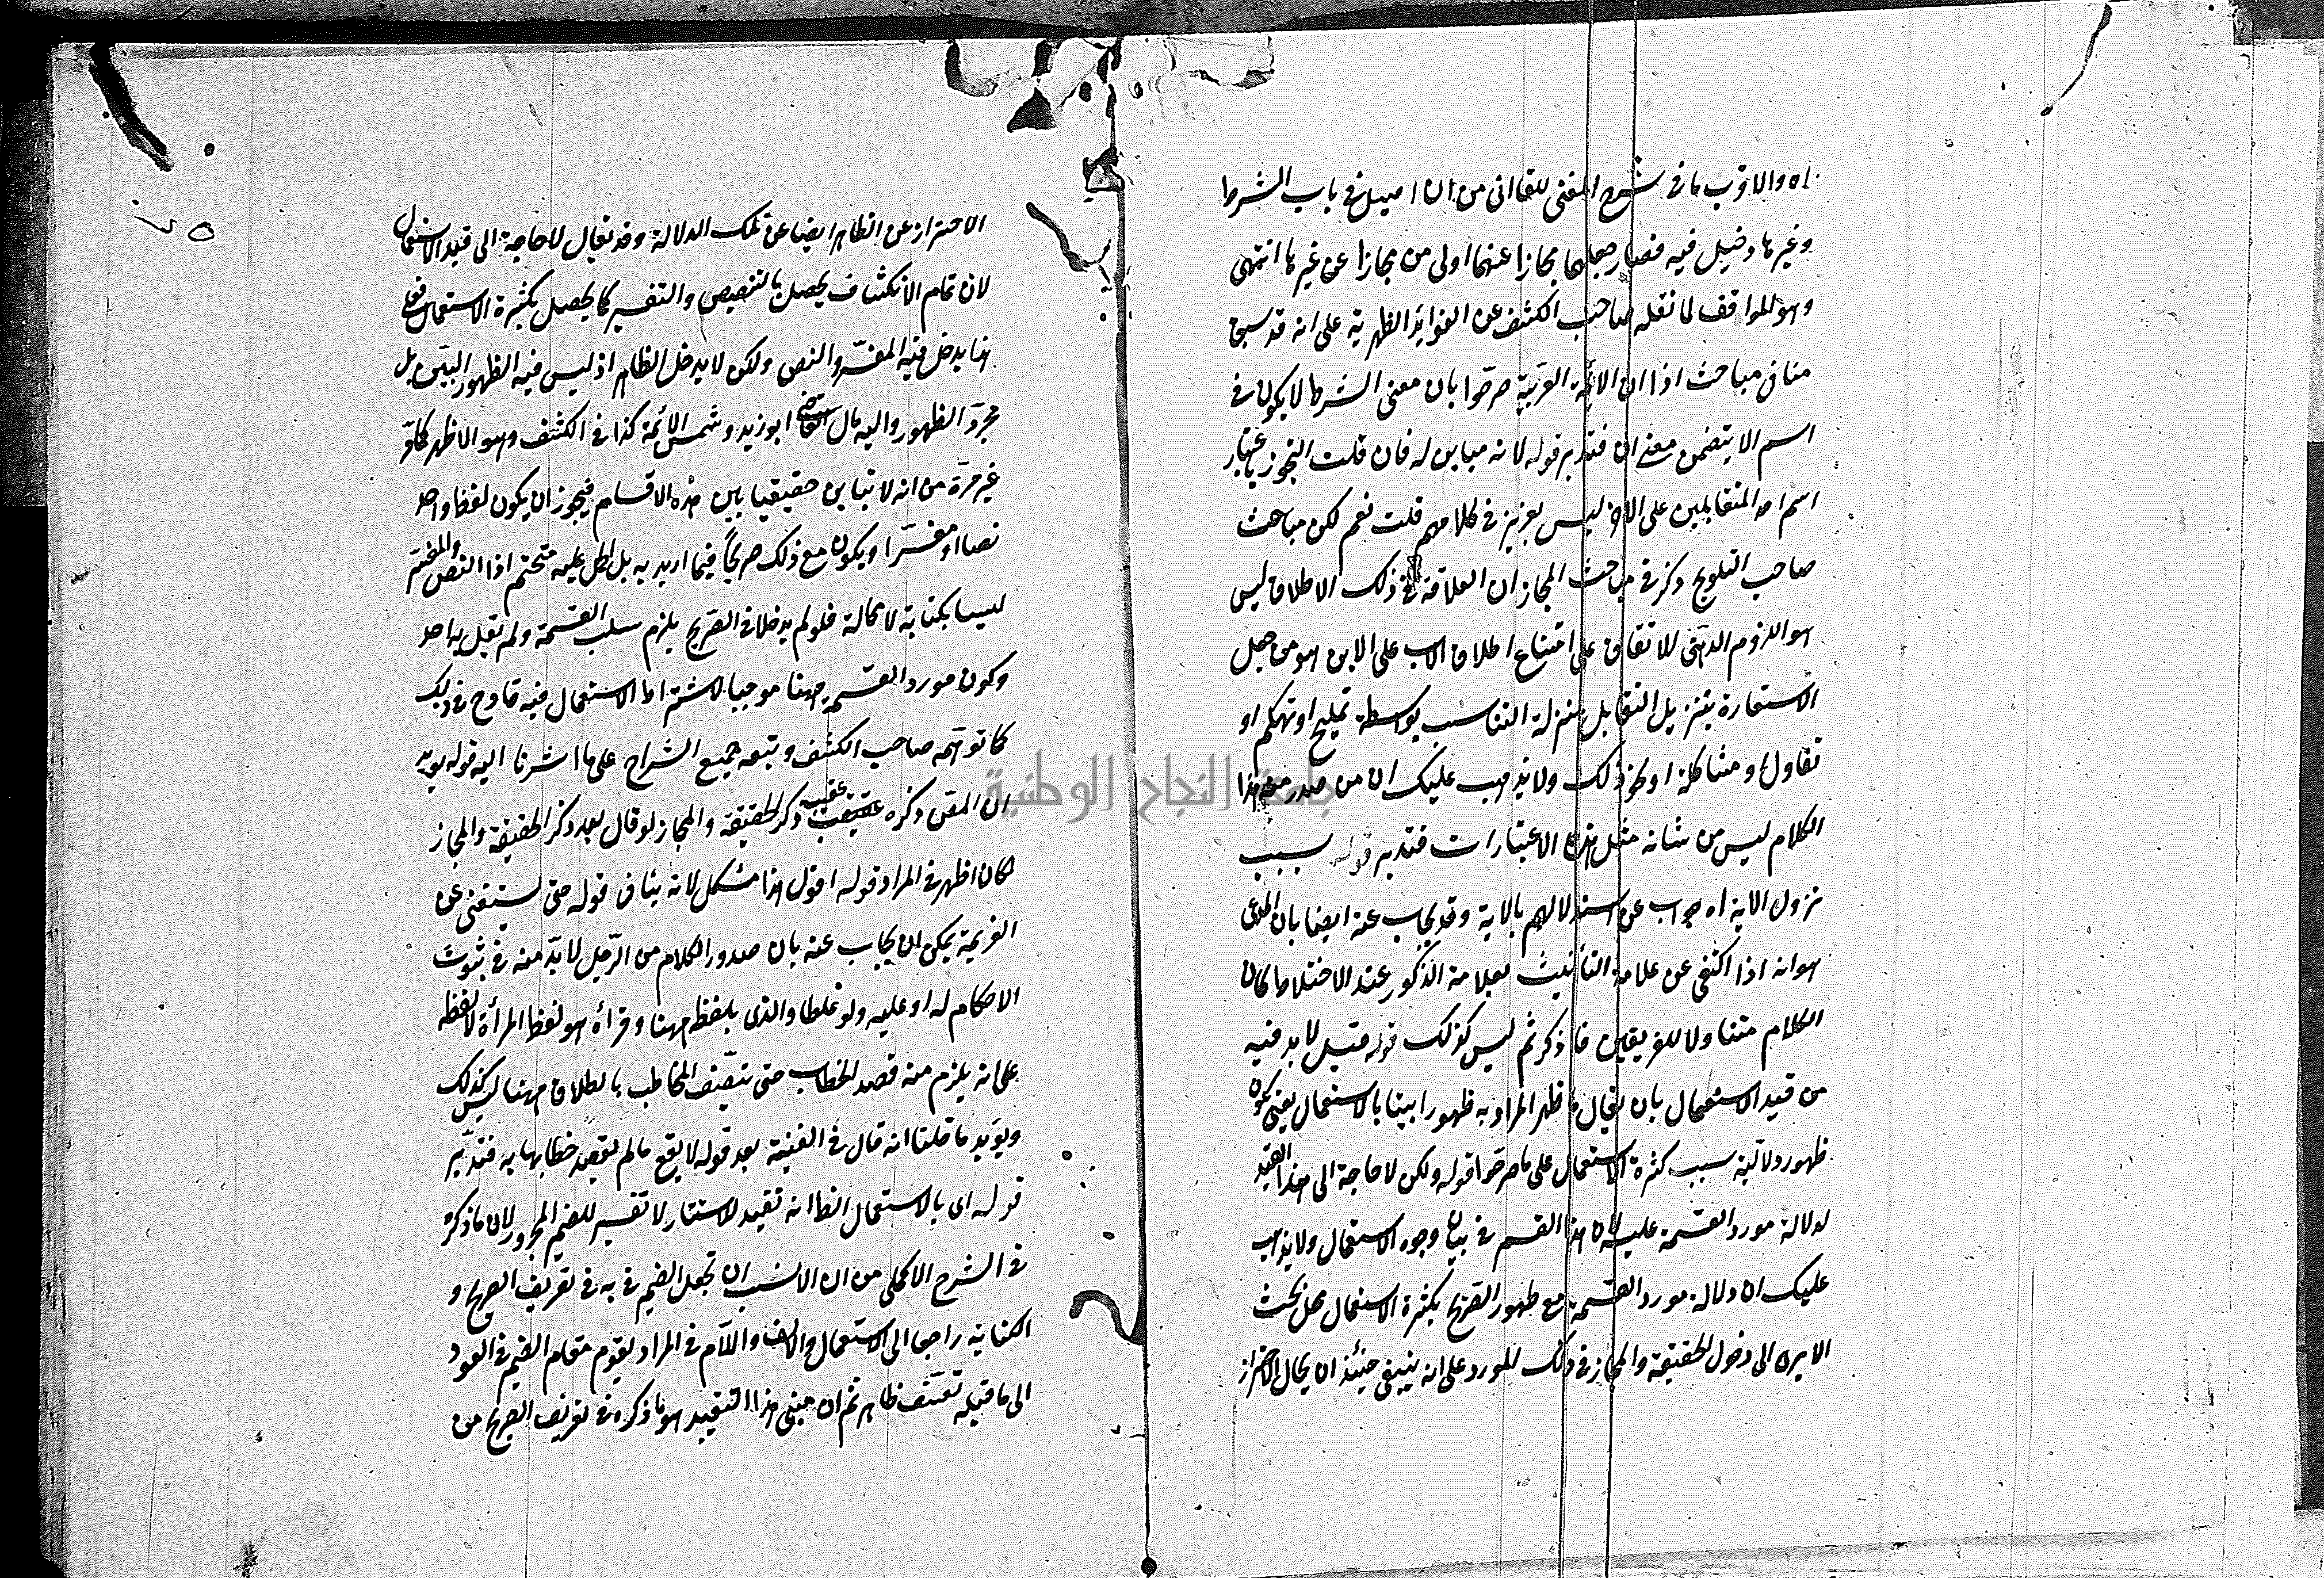 اه والاقرب ما فى شرح المغنى للقاانى من ان اصيل فى باب الشرط
وغيرها دخيل فيه فصار جعلها مجازا عنها اولى من مجازا عن غيرها انتهى
وهو الموافف لما نقله صاحب الكشف عن الفوايد الظهرية على انه قد سبق
منا فى مباحث اذا ان الائمة العربية صرحوا بان معنى الشرط لا يكون فى
اسم الا يتضمن معنى ان فتدبر قوله لانه مباين له فان قلت التجوز باعتبار
اسم احد المتقابلين على الاخر ليس بعزيز فى كلامهم قلت نعم لكن مباحث
صاحب التلويح ذكر فى مباحث المجاز ان العلاقة فى ذلك الاطلاق ليس
هو اللزوم الذهنى للاتفاق على امتناع اطلاق الاب على الابن هو من جعل
الاستعارة بتنزيل التقابل منزلة التناسب بواسطة تمليح او تهكم او
تفاول او مشاكلة او نحو ذلك ولا يذهب عليك ان من صدر منه هذا
الكلام ليس من شانه مثل هذه الاعتبارات فتدبر قوله سبب
نزول الاية اه جواب عن استدلالهم بالاية وقد يجاب عنه ايضا بان المدعى
هو انه اذا اكتفى عن علامة التأنيث بعلامة الذكور عند الاختلاط كان
الكلام متناولا للفريقين فا ذكر ثم ليس كذلك قوله قيل لا بد فيه
من قيد الاستعمال بان يقال ما ظهر المراد به ظهورا بينا بالاستعمال يعنى يكون
ظهور دلالته سبب كثرة الاستعمال على ما صرحوا قوله ولكن لا حاجة الى هذا القيد
لدلالة مورد القسمة عليه لان هذا القسم فى بيان وجوه الاستعمال ولا يذهب
عليك ان دلالة مورد القسمة مع ظهور الصريح بكثرة الاستعمال محل بحث
الا يرى الى دخول الحقيقة والمجاز فى ذلك المورد على انه ينبغى حينئذ ان يحال الاحتراز
الاحتراز عن الظاهر ايضا عن تلك الدلالة وقد يقال لا حاجة الى قيد الاستعمال
لان تمام الانكشاف يحصل بالتنصيص والتفسير كما يحصل بكثرة الاستعمال فعلى
هذا يدخل فيه المفسر والنص ولكن لا يدخل الظاهر اذ ليس فيه الظهور البين بل
مجرد الظهور واليه مال القاضى ابو زيد وشمس الائمة كذا فى الكشف وهو الاظهر كما مر
غير مرة من انه لا تباين حقيقيا بين هذه الاقسام فيجوز ان يكون لفظ واحد
نصا او مفسرا ويكون مع ذلك صريحا فيما اريد به بل الحمل عليه متحتم اذا النص والمفسر
ليسا بكناية لا محالة فلو لم يدخلا فى الصريح يلزم سلب القسمة ولم يقل به احد
وكون مورد القسمة ههنا موجبا لاشتراط الاستعمال فيه قادح فى ذلك
كما توهمه صاحب الكشف وتبعه جميع الشراح على ما اشرنا اليه قوله يريد
ان المص ذكره عقيب ذكر الحقيقة والمجاز لو قال بعد ذكر الحقيقة والمجاز
لكان اظهر فى المراد قوله اقول هذا مشكل لانه ينافى قوله حتى استغنى عن
العزيمة يمكن ان يجاب عنه بان صدور الكلام من الرجل لا بد منه فى ثبوت
الاحكام له او عليه ولو غلطا والذى بلفظ ههنا وقرأه هو لفظ المرأة لا لفظه
على انه يلزم منه قصد الخطاب حتى يتصف المخاطب بالطلاق ههنا ليس كذلك
ويؤيد ما قلنا انه قال فى القنية بعد قوله لا يقع ما لم يقصد خطابها به فتدبر
قوله اى بالاستعمال الظا انه تقييد للاستتار لا تفسير للضمير المجرور لان ما ذكر
فى الشرح الاكملى من ان الانسب ان تجعل الضمير فى به فى تعريف الصريح و
الكناية راجعا الى الاستعمال والالف واللام فى المراد ليقوم مقام الضمير فى العود
الى ما قبله تعسف ظاهر ثم ان مبنى هذا التقييد هو ما ذكره فى تعريف الصريح من
جامعة النجاح الوطنية